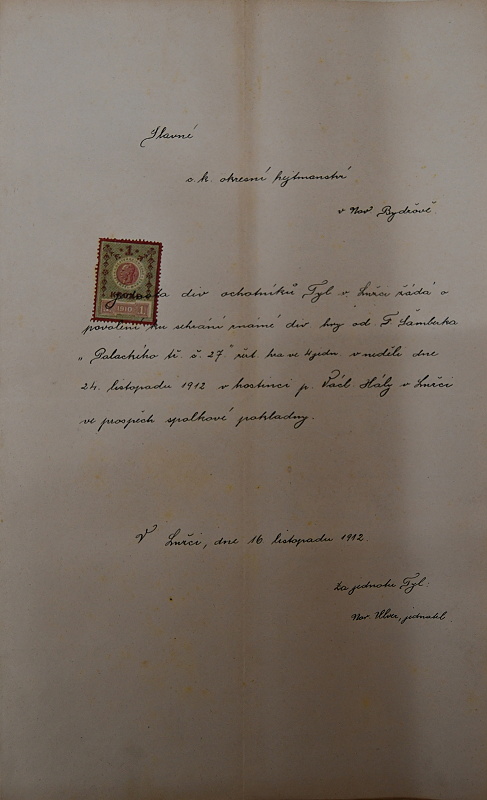 Slavné
c. k. okresní hejtmanství
v Nov. Bydžově.
1
1910
Jednota div ochotníků Tyl v žádá o
povolení ku sehrání známé div. hry od F. Šamberka
„Palackého tř. č. 27." žert. hra ve 4 jedn. v neděli dne
24. listopadu 1912 v hostinci p. Václ. Hály v
ve prospěch spolkové pokladny.
V dne 16 listopadu 1912.
Za jednotu Tyl:
jednatel